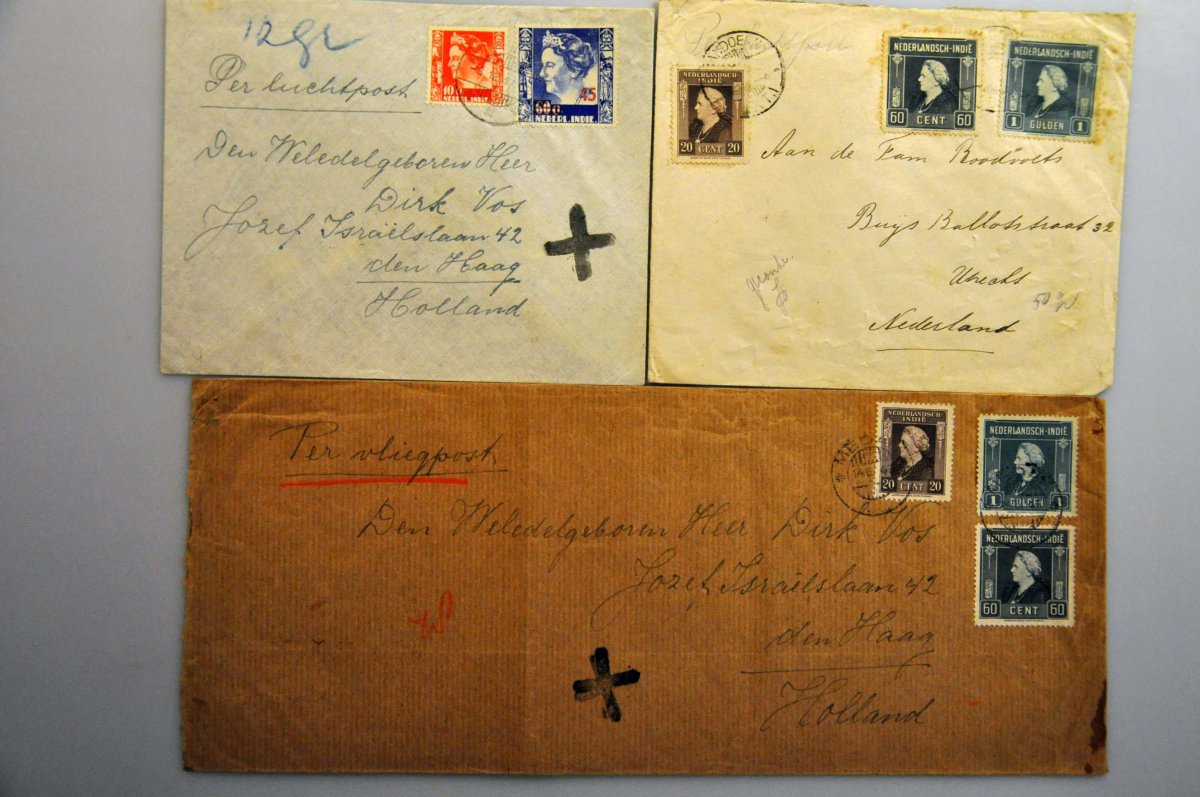 12gr
Per luchtpost
10 c
NEDERL. INDIE
60 c. 45
NEDERL. INDIE
Den Weledelgeboren Heer
Dirk Vos
Jozef Israëlslaan 42
den Haag
Holland
NEDERLANDSCH-INDIË
20 CENT 20
NEDERLANDSCH-INDIË
60 CENT 60
NEDERLANDSCH-INDIË
1 GULDEN 1
Aan de Fam Roodvoets
Buys Ballotstraat 32
Utrecht
Nederland
Per vliegpost
NEDERLANDSCH-INDIË
20 CENT 20
NEDERLANDSCH-INDIË
1 GULDEN 1
NEDERLANDSCH-INDIË
60 CENT 60
Den Weledelgeboren Heer Dirk Vos
Jozef Israëlslaan 42
den Haag
Holland